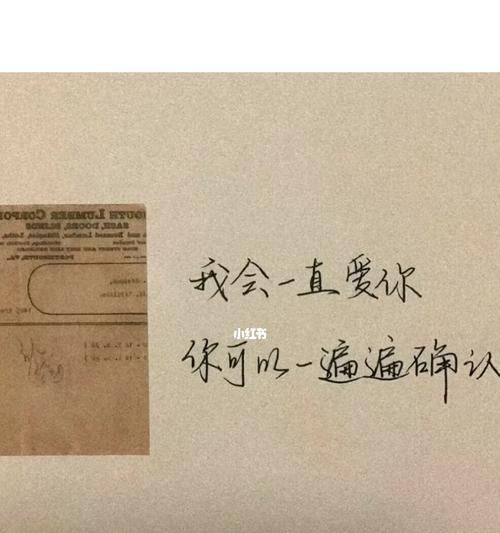 OUTH LUMBER CORPOR
SASH, DOORS, BLINDS
PORTSMOUTH, VA.
我会一直爱你
小红书
你可以一遍遍确认